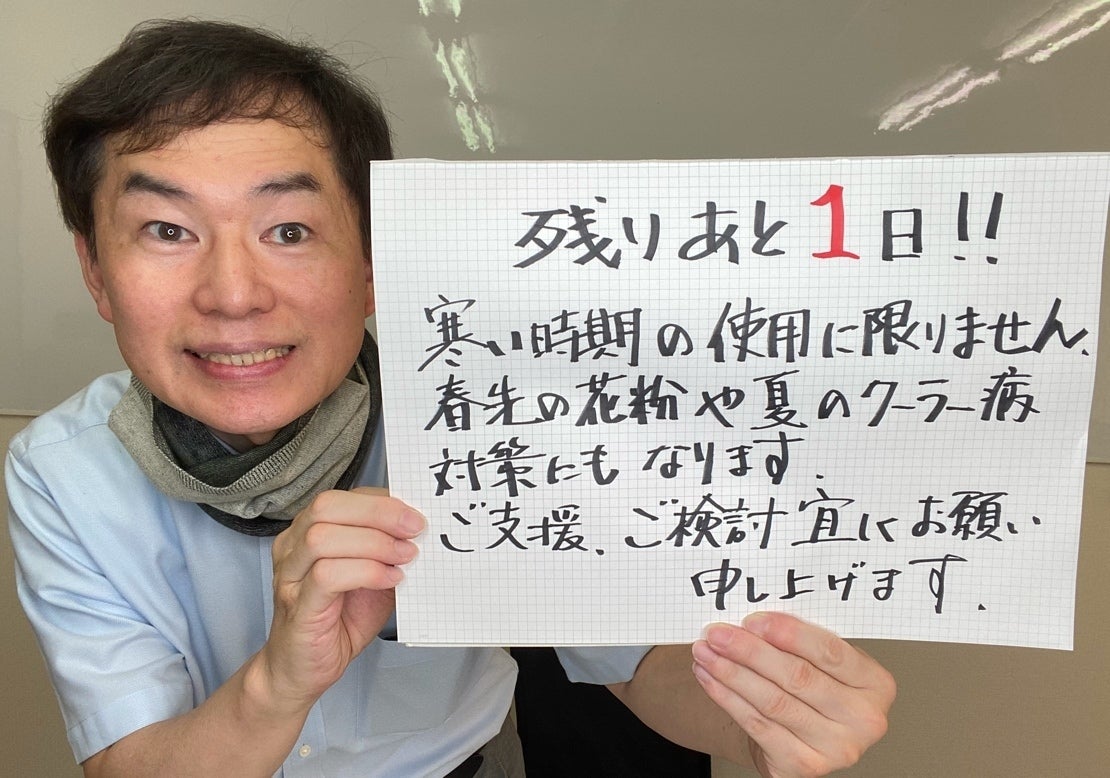 残りあと1日!!
寒い時期の使用に限りません、
春先の花粉や夏のクーラー病
対策にもなります.
ご支援、ご検討宜しくお願い
申し上げます.